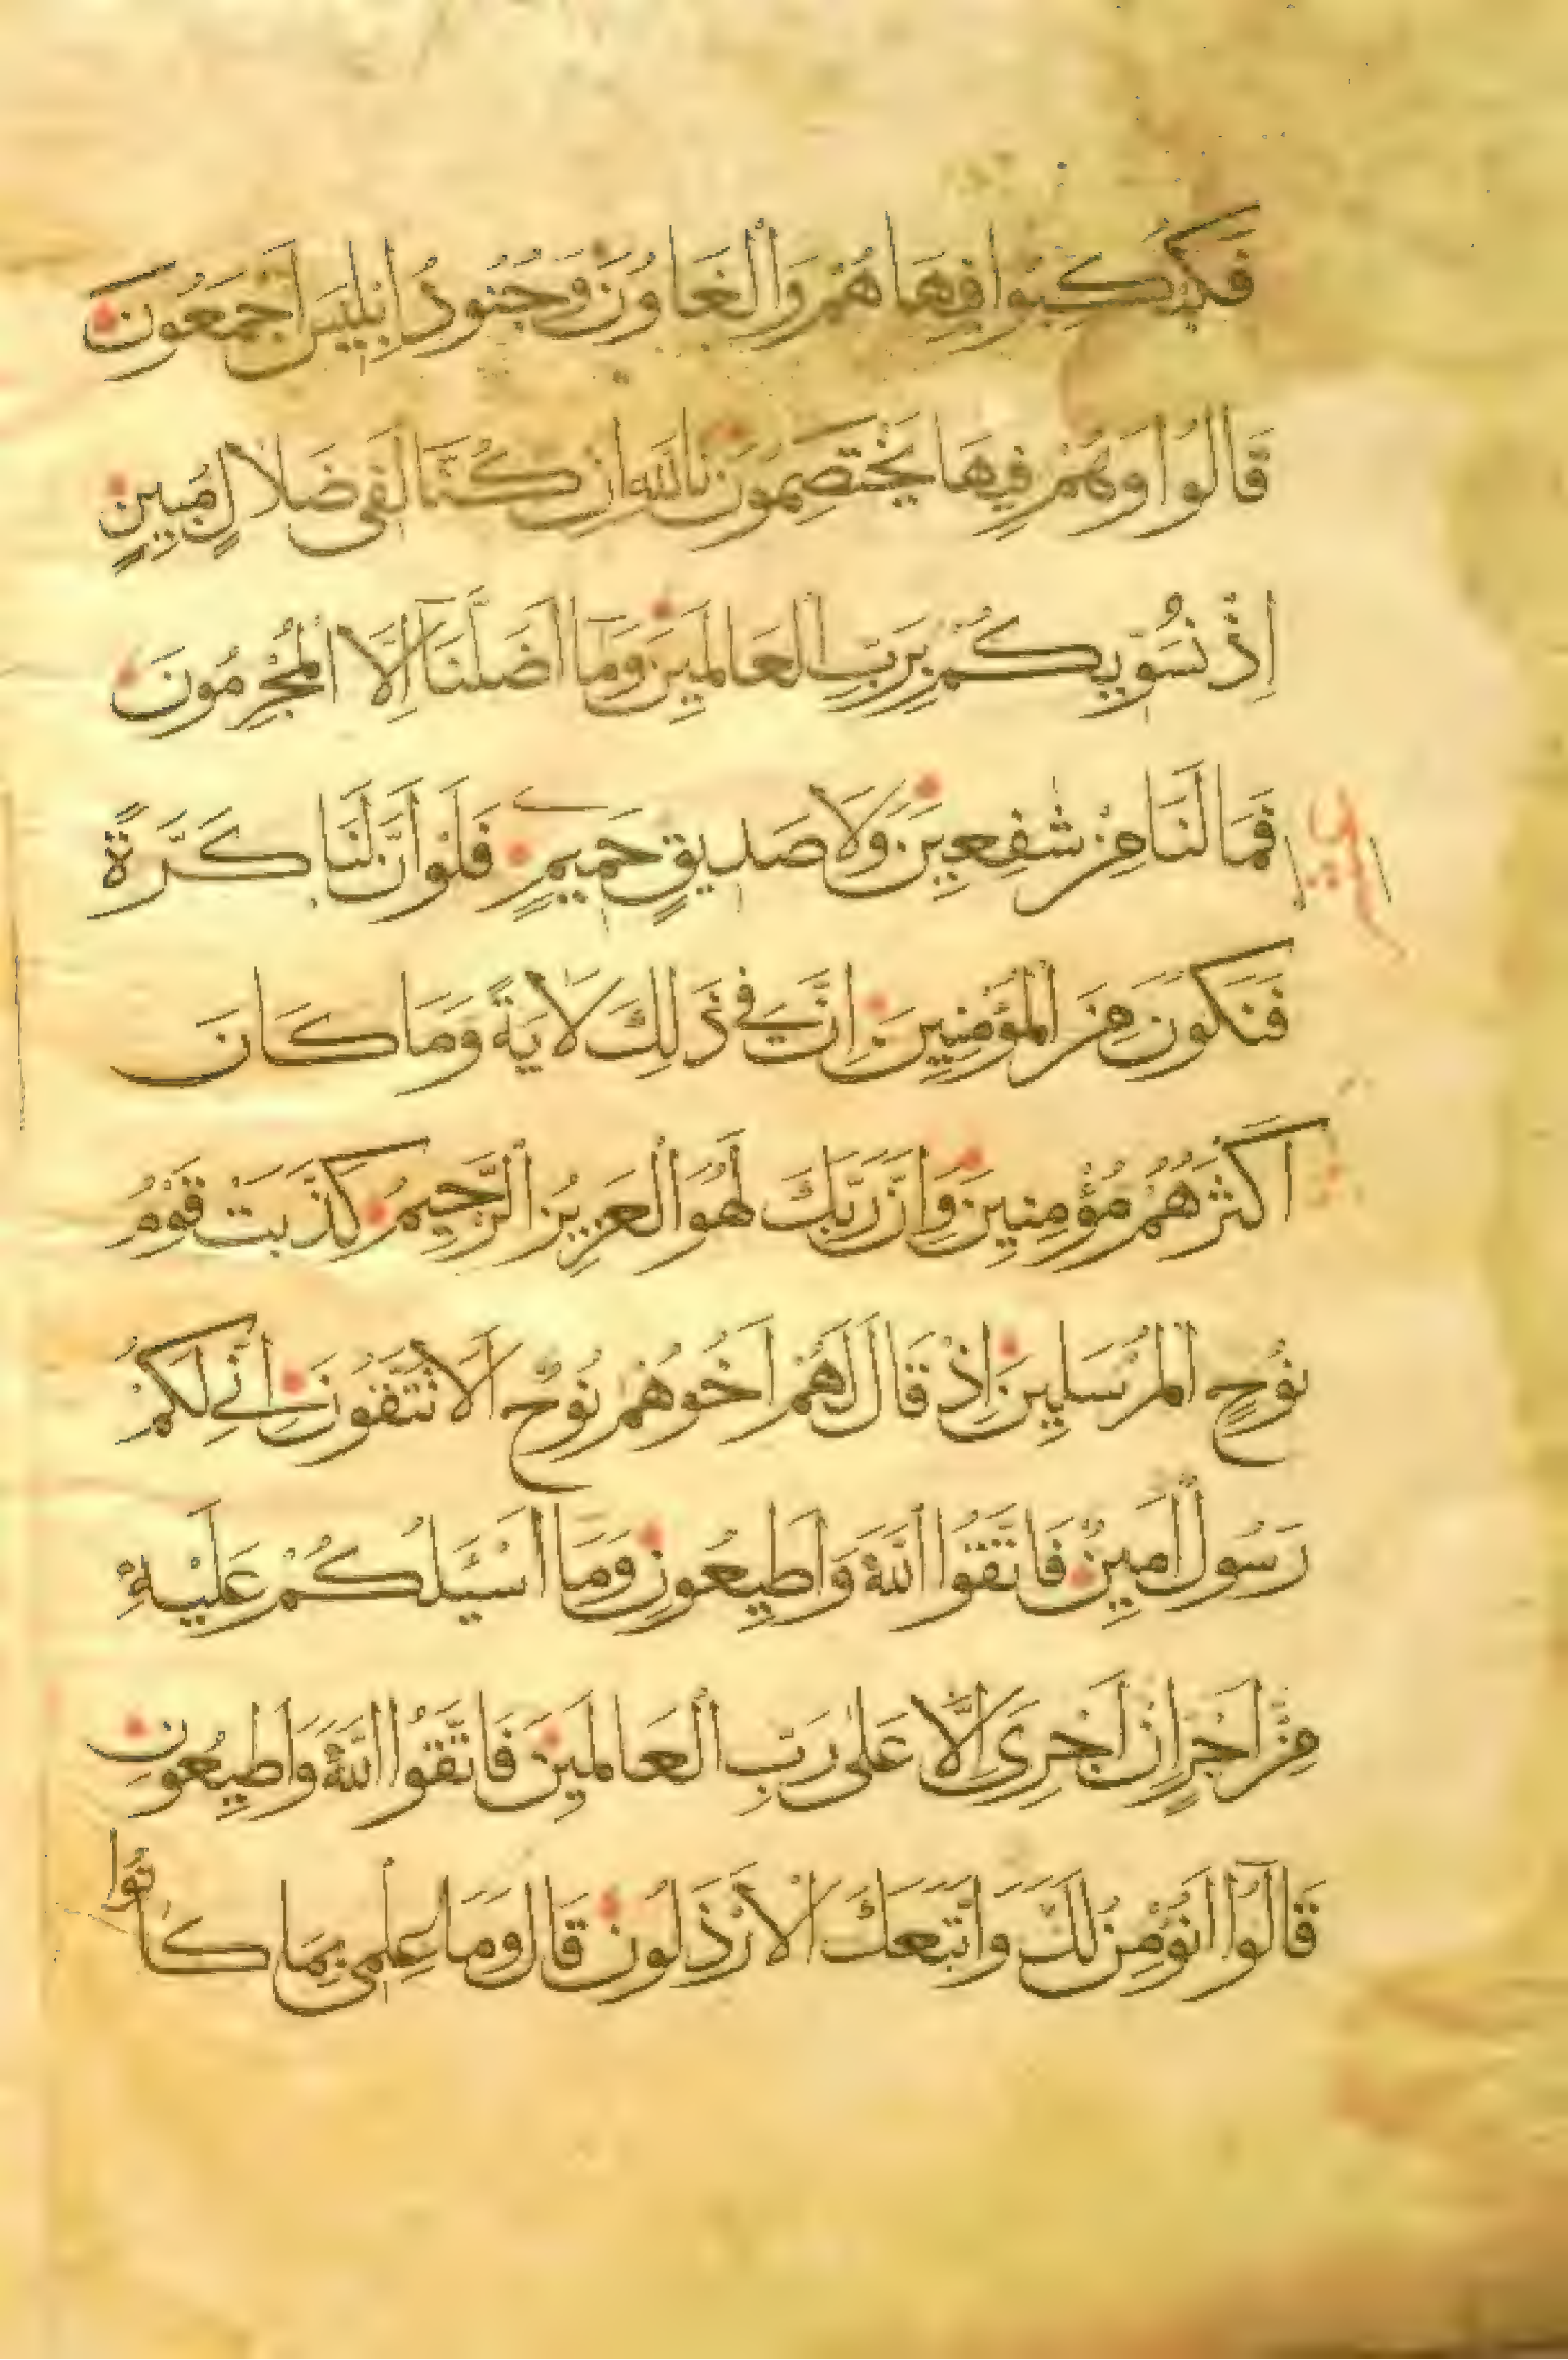 فَكُبْكِبُوا فِيهَا هُمْ وَالْغَاوُنَ وَجُنُودُ اِبْلِيسَ اَجْمَعُونَ
قَالُوا وَهُمْ فِيهَا يَخْتَصِمُونَ تَاللّٰهِ اِنْ كُنَّا لَفِى ضَلَالٍ مُبِينٍ
اِذْ نُسَوِّيكُمْ بِرَبِّ الْعَالَمِينَ وَمَا اَضَلَّنَا اِلَّا الْمُجْرِمُونَ
فَمَا لَنَا مِنْ شٰفِعِينَ وَلَا صَدِيقٍ حَمِيمٍ فَلَوْ اَنَّ لَنَا كَرَّةً
فَنَكُونَ مِنَ الْمُؤْمِنِينَ اِنَّ فِى ذٰلِكَ لَاٰيَةً وَمَا كَانَ
اَكْثَرُهُمْ مُؤْمِنِينَ وَاِنَّ رَبَّكَ لَهُوَ الْعَزِيزُ الرَّحِيمُ كَذَّبَتْ قَوْمُ
نُوحٍ الْمُرْسَلِينَ اِذْ قَالَ لَهُمْ اَخُوهُمْ نُوحٌ اَلَا تَتَّقُونَ اِنِّى لَكُمْ
رَسُولٌ اَمِينٌ فَاتَّقُوا اللّٰهَ وَاَطِيعُونِ وَمَا اَسْـَٔلُكُمْ عَلَيْهِ
مِنْ اَجْرٍ اِنْ اَجْرِىَ اِلَّا عَلٰى رَبِّ الْعَالَمِينَ فَاتَّقُوا اللّٰهَ وَاَطِيعُونِ
قَالُوا اَنُؤْمِنُ لَكَ وَاتَّبَعَكَ الْاَرْذَلُونَ قَالَ وَمَا عِلْمِى بِمَا كَانُوا